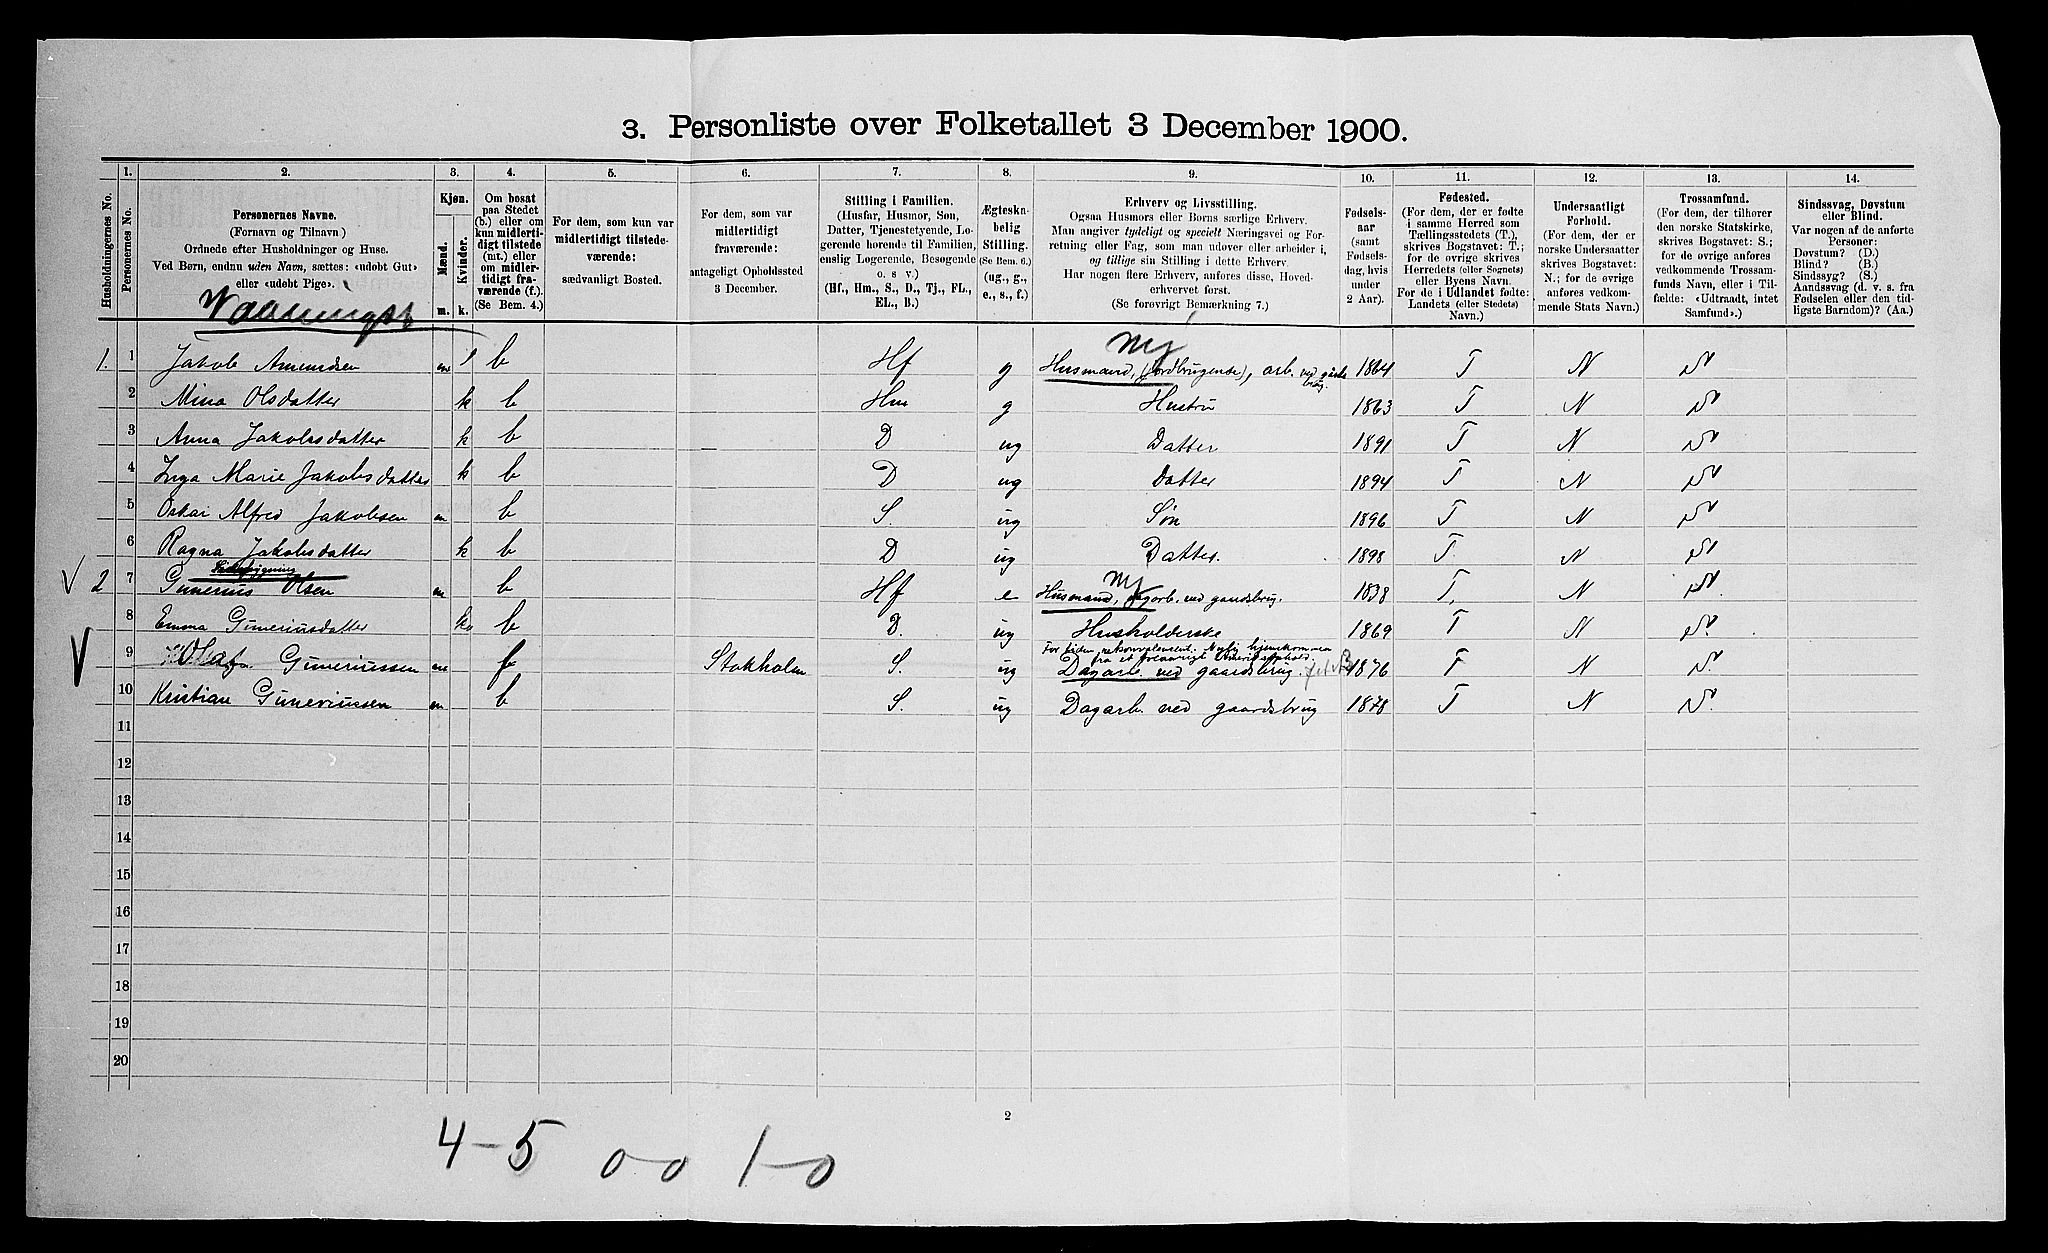 3. Personliste over Folketallet 3 December 1900.
1. 2. 3. 4. 5. 6. 7. 8. 9. 10. 11. 12. 13. 14.
Husholdningernes No.
Personernes No.
Personernes Navne.
(Fornavn og Tilnavn)
Ordnede efter Husholdninger og Huse.
Ved Børn, endnu uden Navn, sættes: «udøbt Gut»
eller «udøbt Pige».
Kjøn.
Mænd.
Kvinder.
m. k.
Om bosat
paa Stedet
(b.) eller om
kun midlerti-
digt tilstede
(mt.) eller
om midler-
tidigt fra-
værende (f.).
(Se Bem. 4.)
For dem, som kun var
midlertidigt tilstede-
værende:
sædvanligt Bosted.
For dem, som var
midlertidigt
fraværende:
antageligt Opholdssted
3 December.
Stilling i Familien.
(Husfar, Husmor, Søn,
Datter, Tjenestetyende, Lo-
gerende hørende til Familien,
enslig Logerende, Besøgende
o. s. v.)
(Hf., Hm., S., D., Tj., FL.,
EL., B.)
Ægteska-
belig
Stilling.
(Se Bem. 6.)
(ug., g.,
e., s., f.)
Erhverv og Livsstilling.
Ogsaa Husmors eller Børns særlige Erhverv.
Man angiver tydeligt og specielt Næringsvei og For-
retning eller Fag, som man udøver eller arbeider i,
og tillige sin Stilling i dette Erhverv.
Har nogen flere Erhverv, anføres disse, Hoved-
erhvervet først.
(Se forøvrigt Bemærkning 7.)
Fødsels-
aar
(samt
Fødsels-
dag, hvis
under
2 Aar).
Fødested.
(For dem, der er fødte
i samme Herred som
Tællingsstedets (T.),
skrives Bogstavet: T.;
for de øvrige skrives
Herredets (eller Sognets)
eller Byens Navn.
For de i Udlandet fødte:
Landets (eller Stedets)
Navn.)
Undersaatligt
Forhold.
(For dem, der er
norske Undersaatter
skrives Bogstavet:
N.; for de øvrige
anføres vedkom-
mende Stats Navn.)
Trossamfund.
(For dem, der tilhører
den norske Statskirke,
skrives Bogstavet: S.;
for de øvrige anføres
vedkommende Trossam-
funds Navn, eller i Til-
fælde: «Udtraadt, intet
Samfund».)
Sindssvag, Døvstum
eller Blind.
Var nogen af de anførte
Personer:
Døvstum? (D.)
Blind? (B.)
Sindssyg? (S.)
Aandssvag (d. v. s. fra
Fødselen eller den tid-
ligste Barndom)? (Aa.)
Vaaningsh
Ny
1. 1 Jakob Amundsen m b Hf g Husmand, (jordbrugende), arb. ved gårds
brug. 1864 T N S
2 Mina Olsdatter k b Hm g Hustru 1863 T N S
3 Anna Jakobsdatter k b D ug Datter 1891 T N S
4 Inga Marie Jakobsdatter k b D ug Datter 1894 T N S
5 Oskar Alfred Jakobsen m b S. ug Søn 1896 T N S
6 Ragna Jakobsdatter k b D ug Datter. 1898 T. N S
Sidebygning
Ny
V 2 7 Gunerius Olsen m b Hf e Husmand, dagarb. ved gaardsbrug. 1838 T. N S.
8 Emma Guneriusdatter k b D. ug Husholderske 1869 T N S.
For tiden rekonvalesent. Nylig hjemkommen
fra et treaarigt Amerikaophold.
V 9 Olaf Guneriussen m f Stokholm S. ug Dagarb. ved gaardsbrug. 1876 T N S.
10 Kristian Guneriussen m b S. ug Dagarb. ved gaardsbrug 1878 T N S.
11
12
13
14
15
16
17
18
19
20
2
4-5 0-0 1-0